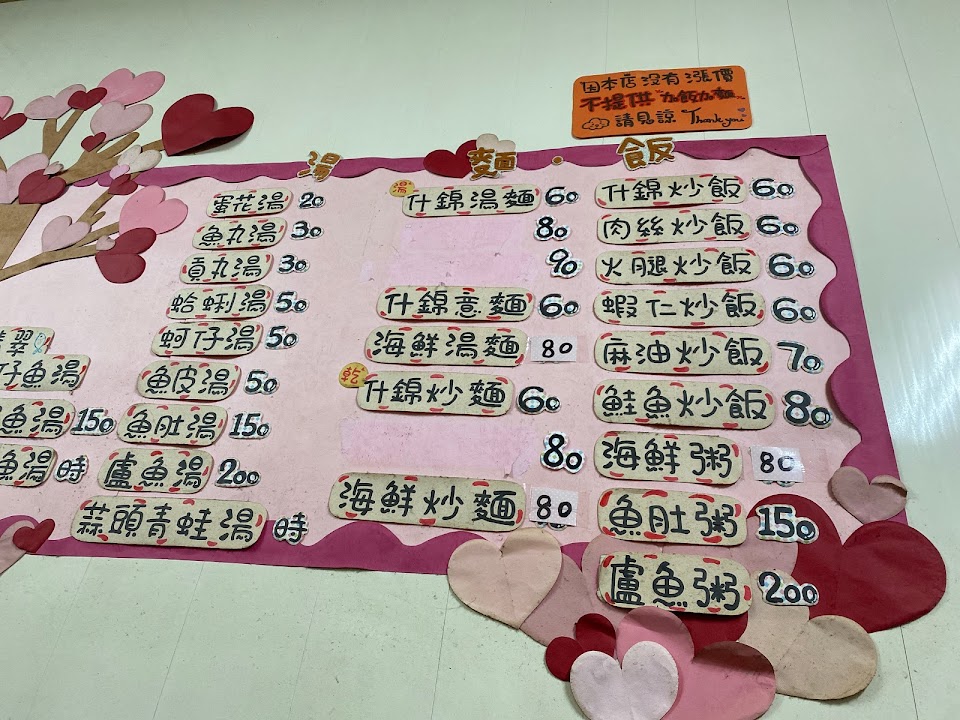 因本店没有漲價
不提供"加飯加麵"
請見諒 Thank you
湯
麵.飯
蛋花湯 20
魚丸湯 30
貢丸湯 30
蛤蜊湯 50
蚵仔湯 50
魚皮湯 50
魚肚湯 150
盧魚湯 200
蒜頭青蛙湯 時
翠
仔魚湯
魚湯 150
魚湯 時
湯
什錦湯麵 60
80
90
什錦意麵 60
海鮮湯麵 80
乾
什錦炒麵 60
80
海鮮炒麵 80
什錦炒飯 60
肉絲炒飯 60
火腿炒飯 60
蝦仁炒飯 60
麻油炒飯 70
鮭魚炒飯 80
海鮮粥 80
魚肚粥 150
盧魚粥 200